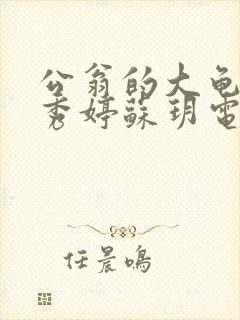 公翁的大龟
秀婷蘇玥電
任晨鳴